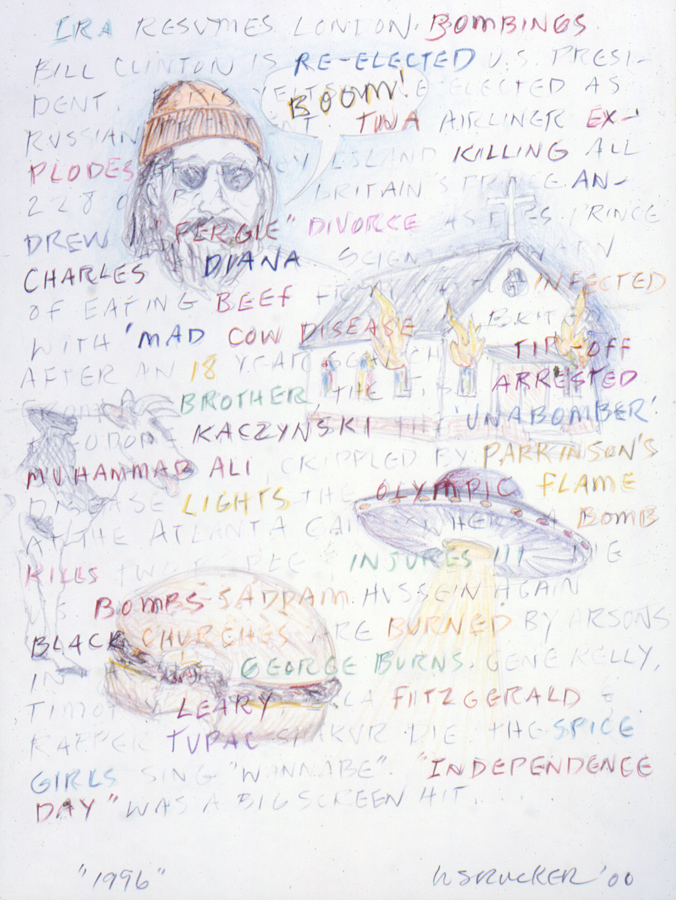 IRA RESUMES LONDON BOMBINGS.
BILL CLINTON IS RE-ELECTED U.S. PRESI-
DENT. BOOM! ELECTED AS
RUSSIAN TWA AIRLINER EX-
PLODES ISLAND KILLING ALL
228 BRITAIN'S PRINCE AN-
DREW "FERGIE" DIVORCE AS DOES PRINCE
CHARLES DIANA. SCIEN
OF EATING BEEF INFECTED
WITH 'MAD COW DISEASE
AFTER AN 18 YEAR TIP-OFF
BROTHER, THE ARRESTED
KACZYNSKI THE 'UNABOMBER'.
MUHAMMAD ALI, CRIPPLED BY PARKINSON'S
DISEASE LIGHTS THE OLYMPIC FLAME
AT THE ATLANTA WHERE A BOMB
KILLS INJURES 111
U.S. BOMBS SADDAM HUSSEIN AGAIN
BLACK CHURCHES ARE BURNED BY ARSONS
IN GEORGE BURNS, GENE KELLY,
LEARY, FITZGERALD &
RAPPER TUPAC SHAKUR DIE. THE SPICE
GIRLS SING "WANNABE". "INDEPENDENCE
DAY" WAS A BIG SCREEN HIT.
"1996" WSRUCKER '00